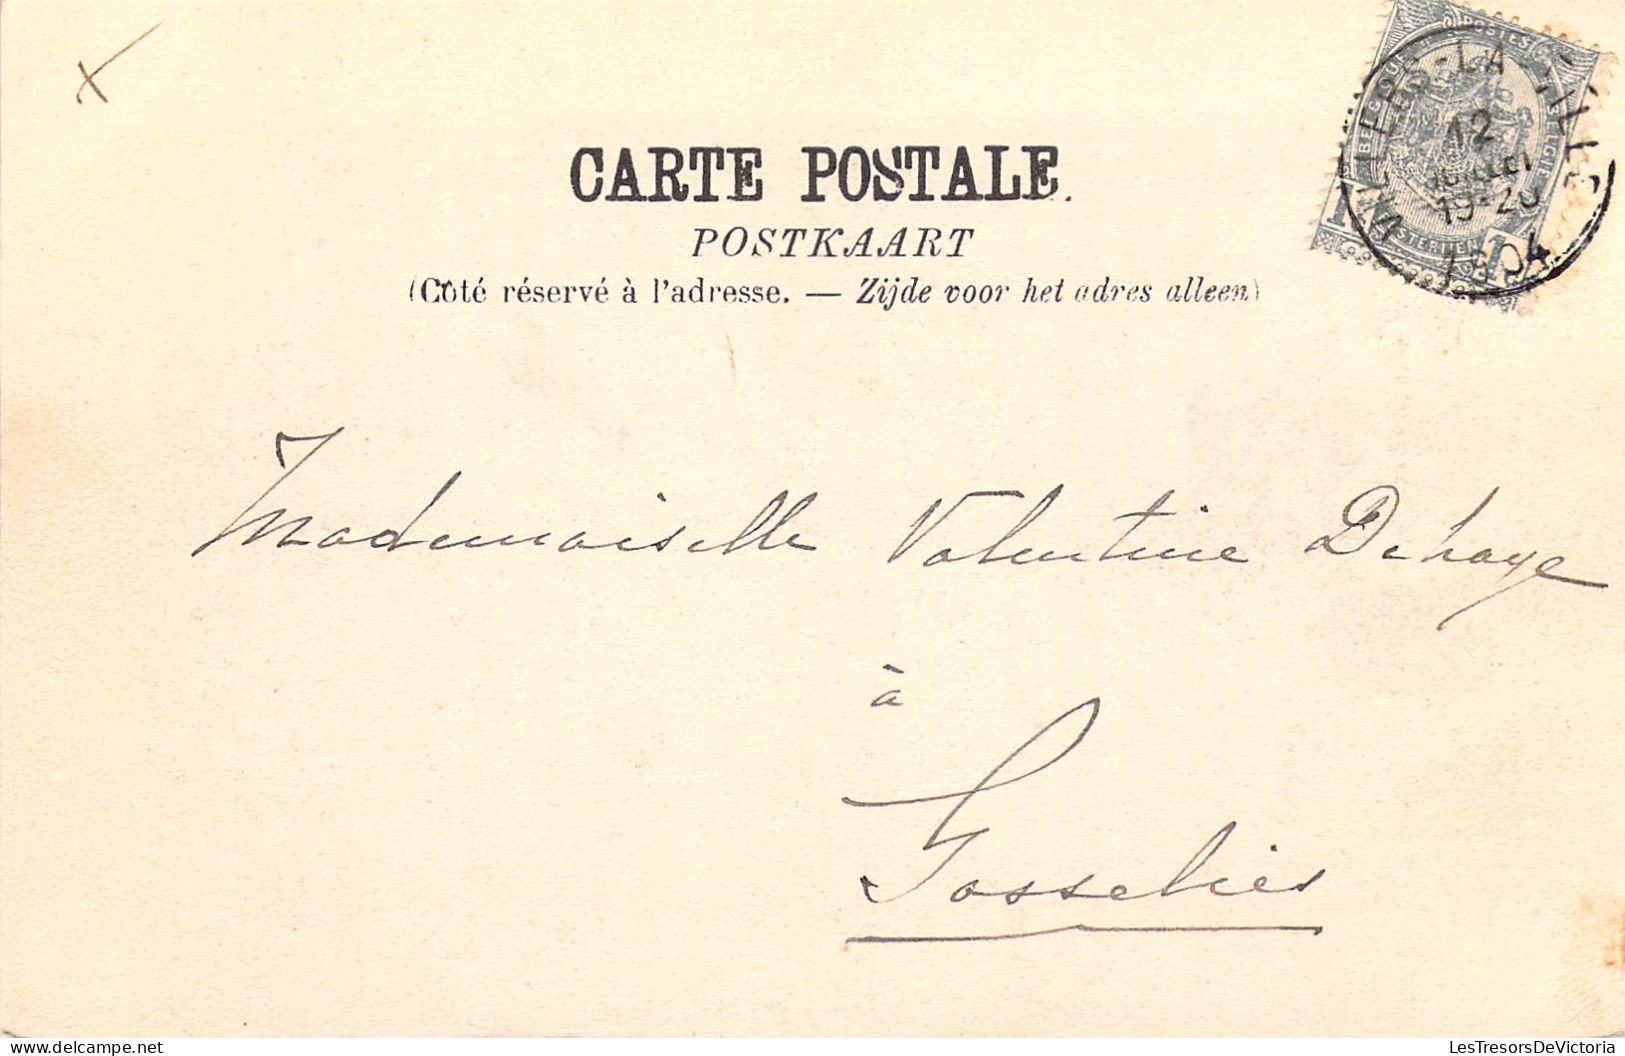 CARTE POSTALE.
POSTKAART
(Côté réservé à l'adresse. — Zijde voor het adres alleen)
VILLERS-LA-VILLE
12
JUILLET
19-20
1904
POSTES
BELGIQUE
BELGIË
1 1
Mademoiselle Valentine Dehaye
à
Gosselies
LesTresorsDeVictoria